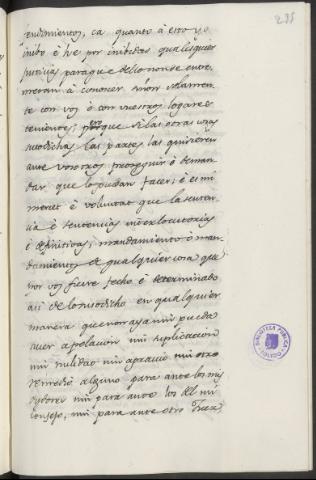 235
endimientos, ca quanto à esto yo
inibo è he por inibidas qualesquier
Justicias para que dello non se entre
metan à conocer sinon solamen-
te con vos ò con vuestros logares
tenientes, pero que si las otras cosas
susodichas las partes las quisieren
ante vosotros proseguir è deman
dar que lo puedan facer; è es mi
merced è voluntat que la senten
cia è sentencias interlocutorias
è definitivas, mandamiento è man-
damientos de qualquier cosa que
por vos fuere fecho è determinado
asi de lo susodicho en qualquier
manera que non aya nin pueda
aver apelacion nin suplicacion
nin nulidad nin agravio nin otro
remedio alguno para ante los mis
oydores nin para ante los del mi
consejo, nin para ante otro Juez
BIBLIOTECA PUBLICA
TOLEDO